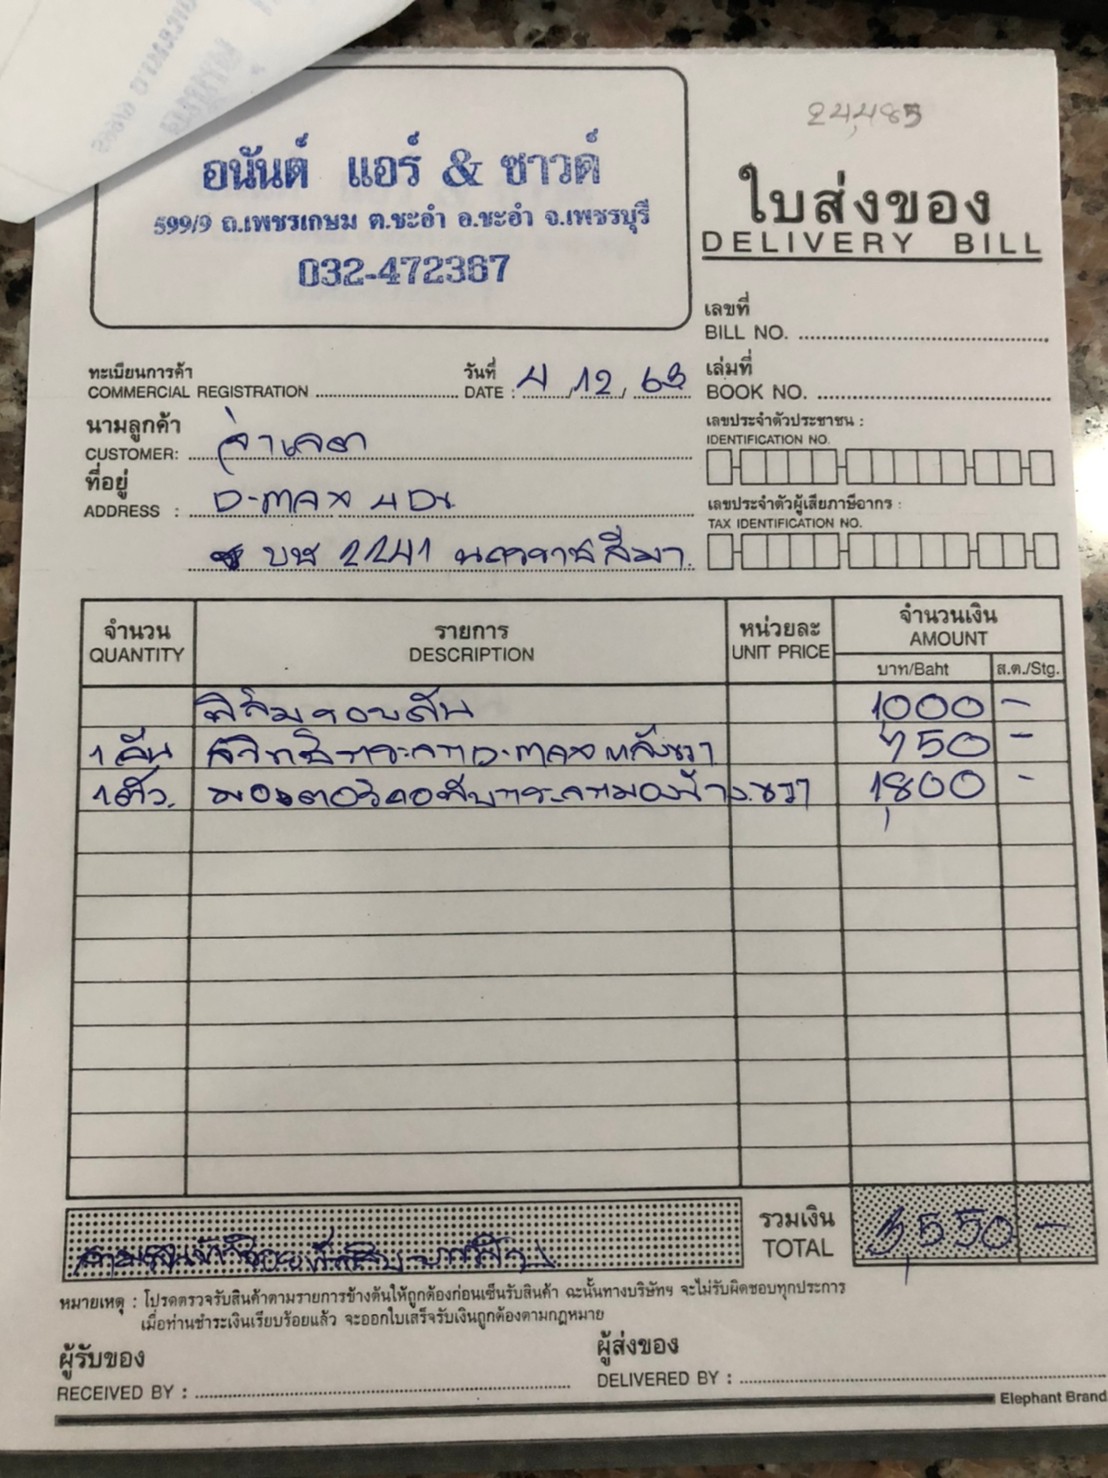 24,485
อนันต์ แอร์ & ซาวด์
599/9 ถ.เพชรเกษม ต.ชะอำ อ.ชะอำ จ.เพชรบุรี
032-472367
ใบส่งของ
DELIVERY BILL
เลขที่
BILL NO.
ทะเบียนการค้า
COMMERCIAL REGISTRATION
วันที่
DATE : 4/12/63
เล่มที่
BOOK NO.
นามลูกค้า
CUSTOMER: จ่าเจต
เลขประจำตัวประชาชน :
IDENTIFICATION NO.
ที่อยู่
ADDRESS : D-max 4Dr
บษ 2241 นครราชสีมา
เลขประจำตัวผู้เสียภาษีอากร :
TAX IDENTIFICATION NO.
จำนวน รายการ หน่วยละ จำนวนเงิน
QUANTITY DESCRIPTION UNIT PRICE AMOUNT
บาท/Baht ส.ต./Stg.
ฟิล์มรอบคัน 1,000 -
1 อัน สวิทช์กระจกD-max หลังขวา 750 -
1 ตัว. มอเตอร์ กระจกมองข้าง.ขวา 1,800 -
รวมเงิน
TOTAL 3,550 -
หมายเหตุ : โปรดตรวจรับสินค้าตามรายการข้างต้นให้ถูกต้องก่อนเซ็นรับสินค้า ฉะนั้นทางบริษัทฯ จะไม่รับผิดชอบทุกประการ
เมื่อท่านชำระเงินเรียบร้อยแล้ว จะออกใบเสร็จรับเงินถูกต้องตามกฎหมาย
ผู้รับของ
RECEIVED BY :
ผู้ส่งของ
DELIVERED BY :
Elephant Brand